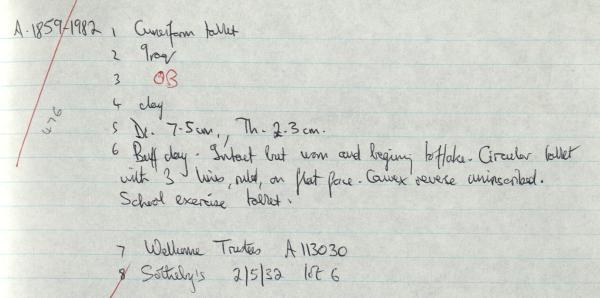 A.1859-1982 1 Cuneiform tablet
2 Iraq
3 OB
4 clay
5 D. 7.5cm., Th. 2.3cm.
6 Buff clay. Intact but worn and beginning to flake. Circular tablet
with 3 lines, ruled, on flat face. Convex reverse uninscribed.
School exercise tablet.
476
7 Wellcome Trustees A 113030
8 Sotheby's 2/5/32 lot 6